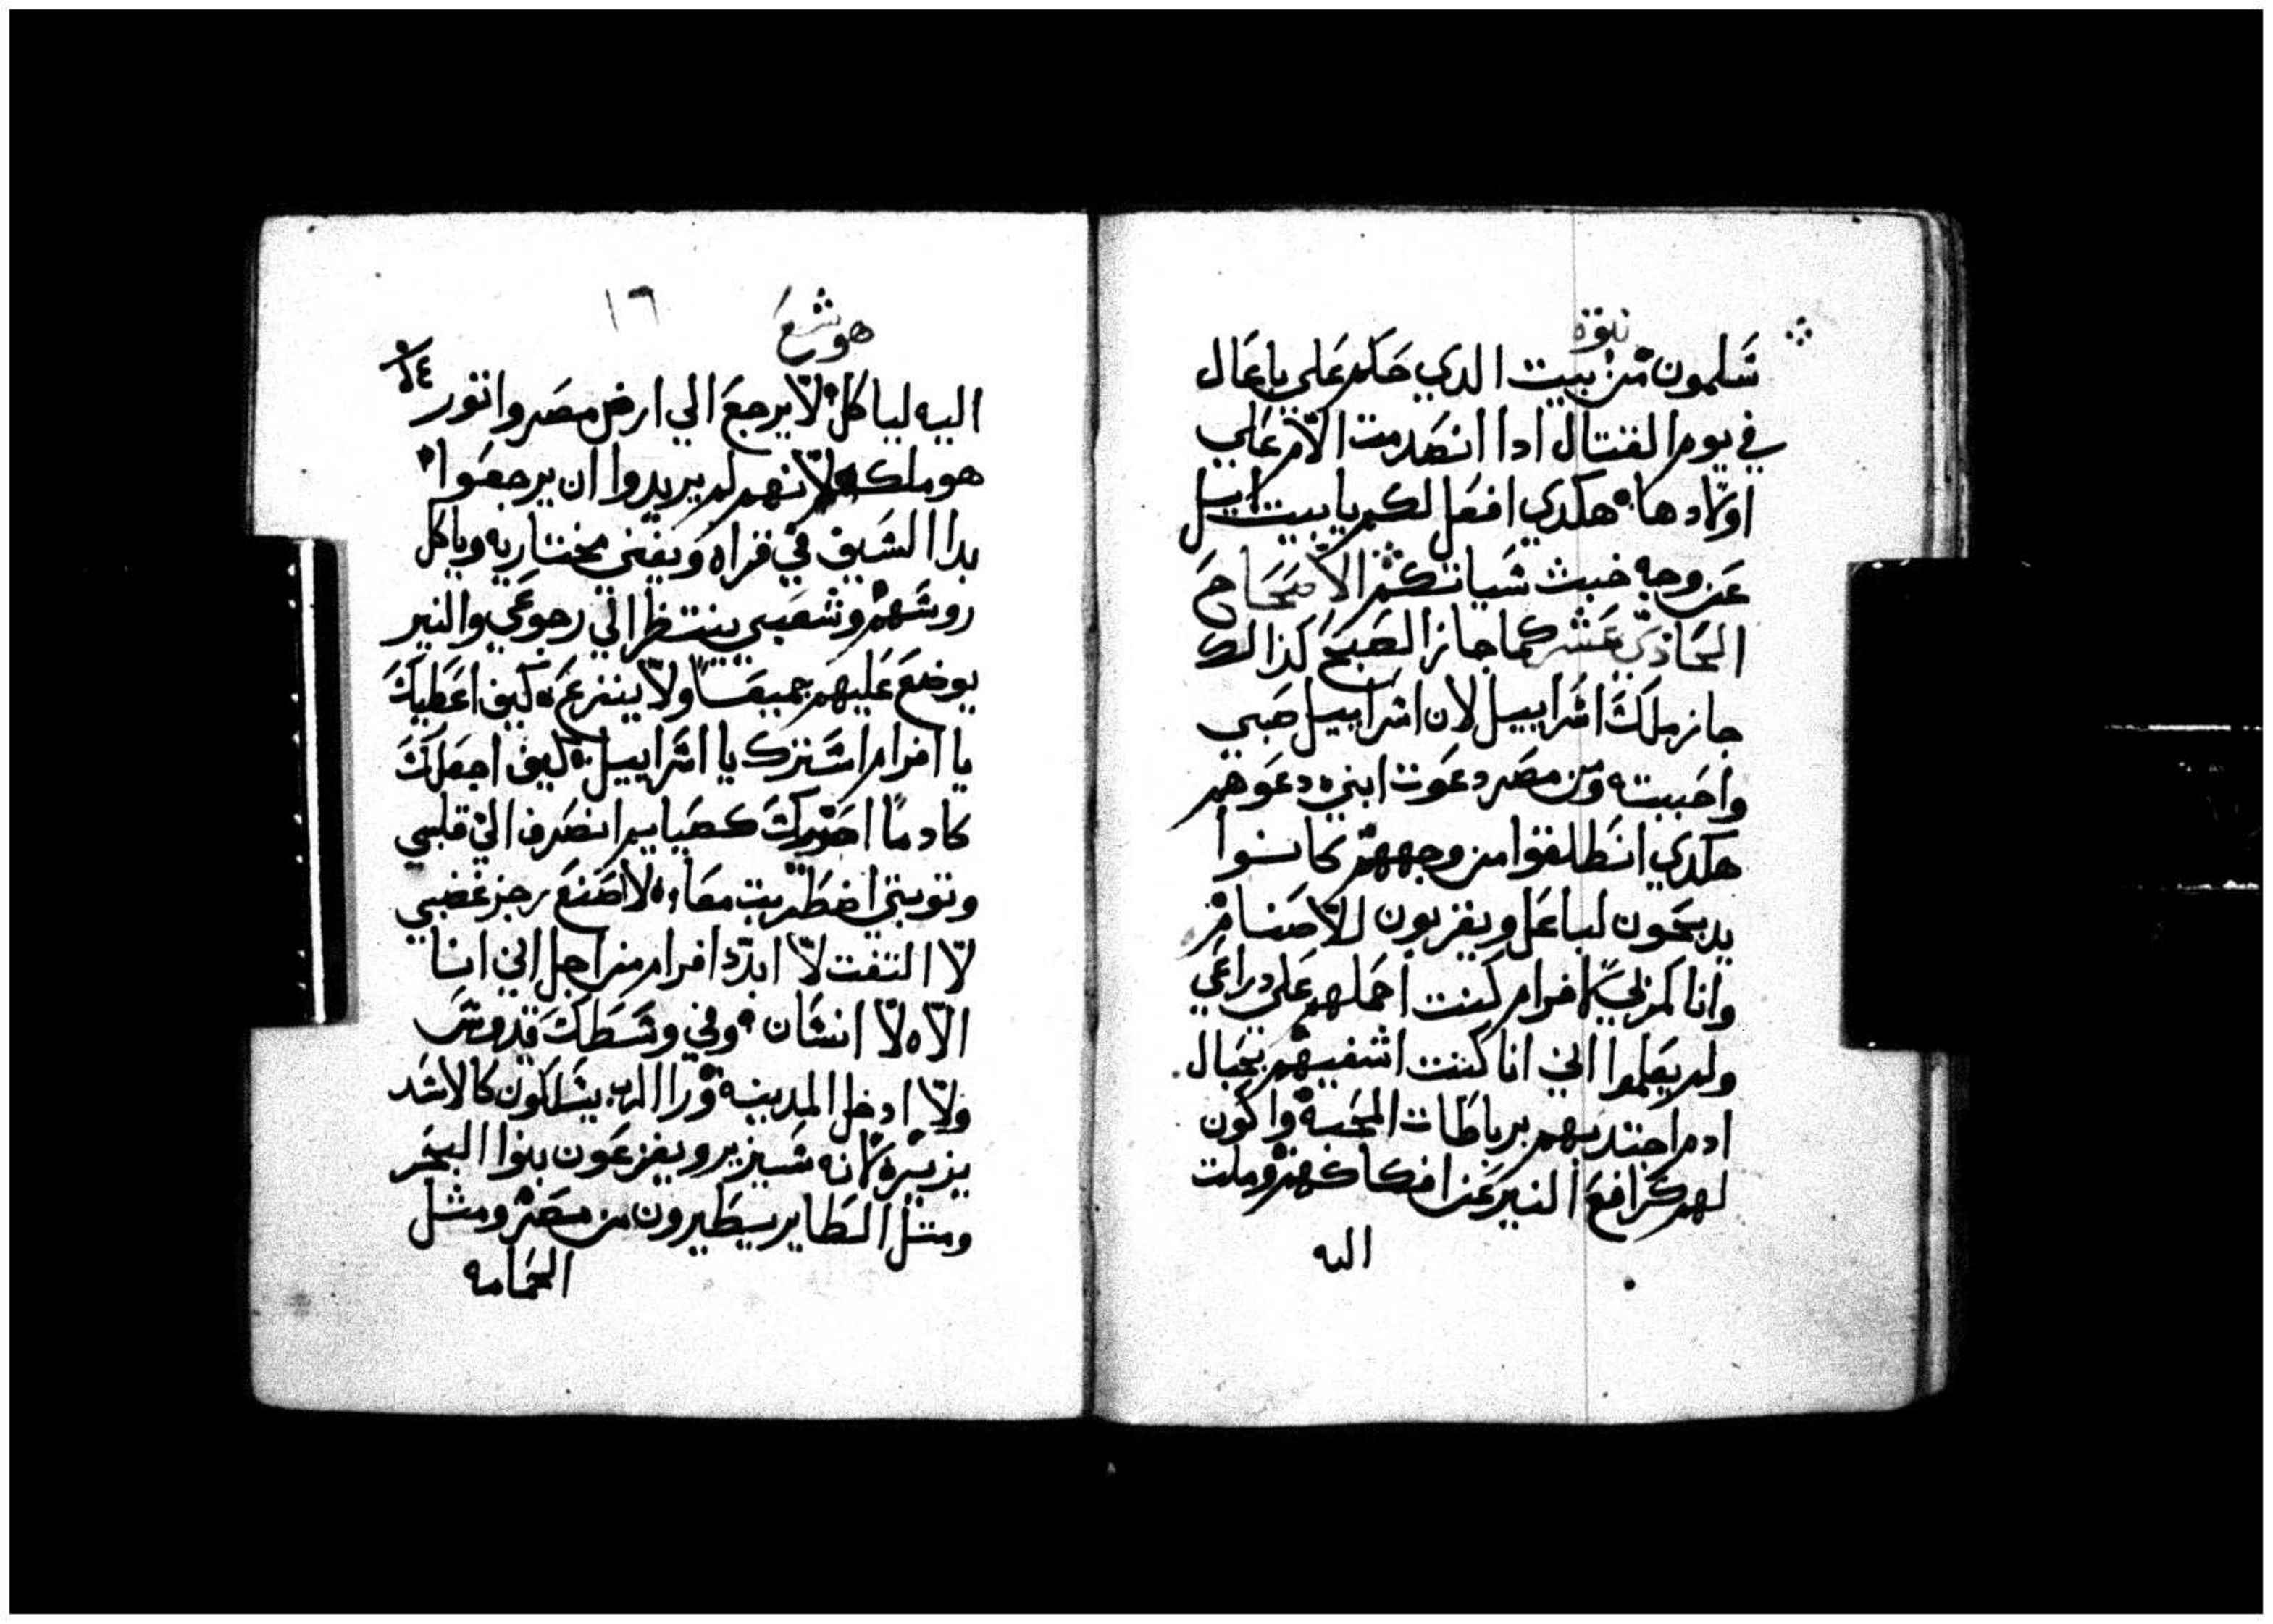 نبوة
شلمون من بيت الدي حكم علي ياعال
في يوم القتال ادا انصدمت الام علي
اولادها هكدي افعل لكم يا بيت ايل
عن وجه خبث سياتكم الاصحاح
الحادي عشر كما جاز الصبح كذالك
جاز ملك اسراييل لان اسراييل صبي
واحببته ومن مصر دعوت ابني دعوهم
هكدي انطلقوا من وجههم كانوا
يدبحون لباعل ويقربون للاصنام
وانا كمربي افرام كنت احملهم علي دراعي
ولم يعلموا اني انا كنت اشفيهم بحبال
ادم اجتدبهم برباطات المحبة واكون
لهم كرافع النير عن افكاكهم وملت
اليه
هوشع
١٦
اليه لياكل لا يرجع الي ارض مصر واتور
هو ملكه لانهم لم يريدوا ان يرجعوا
بدا السيف في قراه ويفني مختاريه وياكل
روسهم وشعبي ينتظر الي رجوعي والنير
يوضع عليهم جميعًا ولا ينزع كيف اعطيك
يا افرام استرك يا اسراييل كيف اجعلك
كادما احدرك كصباييم انصرف الي قلبي
وتوبتي اضطربت معًا لا اصنع رجز غضبي
لا التفت لا ابدد افرام من اجل اني انا
الاه لا انسان وفي وسطك قدوس
ولا ادخل المدينة ورا الرب يسلكون كالاسد
يزير لانه سيزير ويفزعون بنوا البحر
ومتل الطاير يسطيرون من مصر ومثل
الحمامه